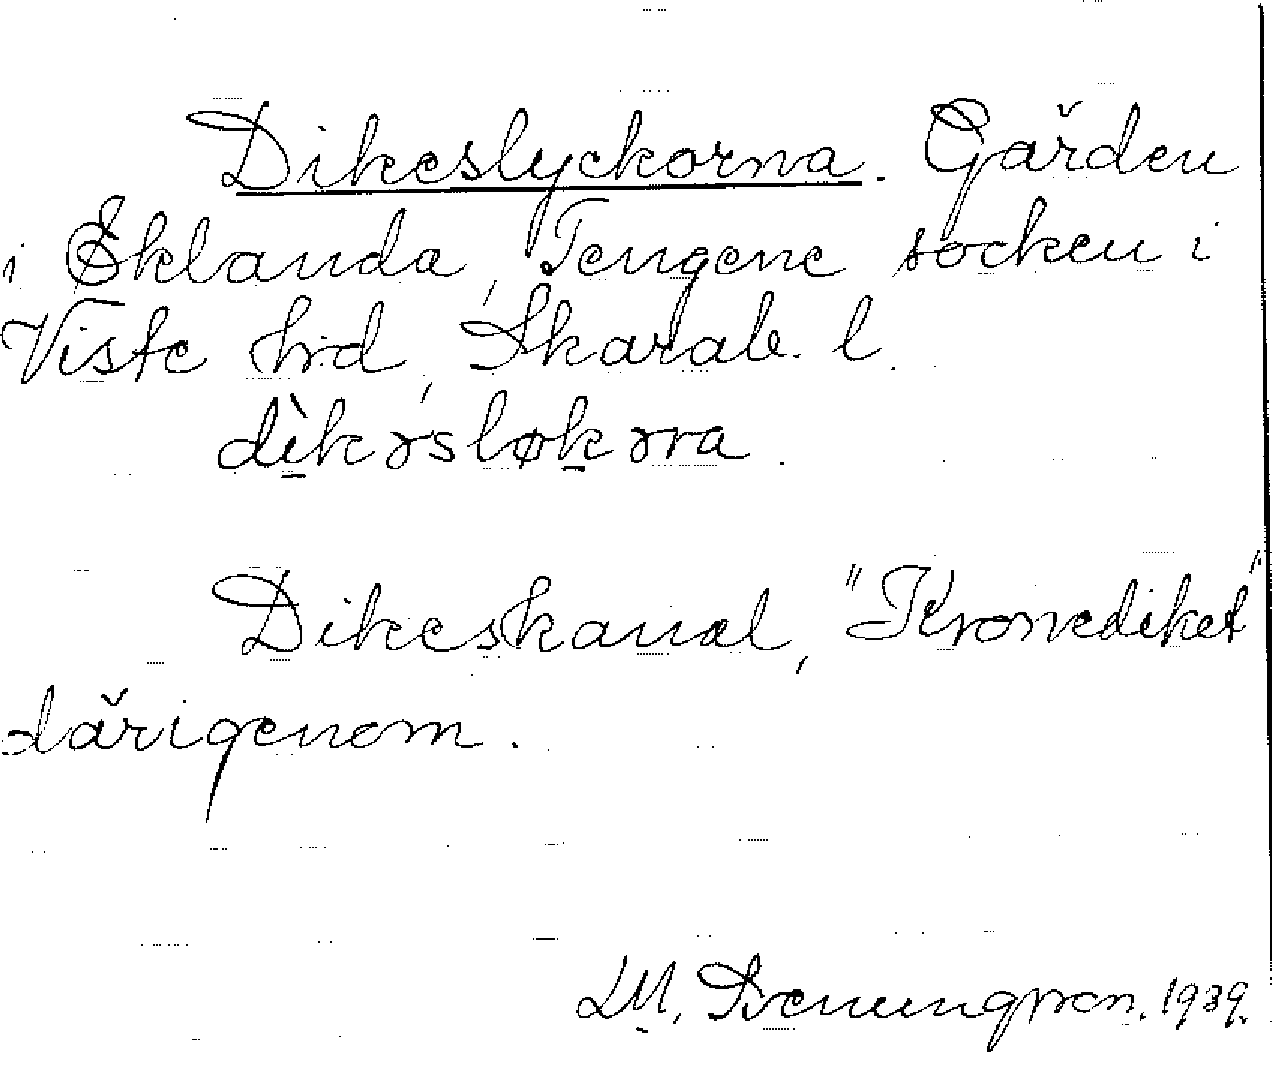 Dikeslyckorna. Gärden
i Eklanda, Tengene socken i
Viste hrd, Skarab. l.
dìkəsløkəna.
Dikeskanal, "Kronediket"
därigenom.
LM. Svenungsson. 1939.